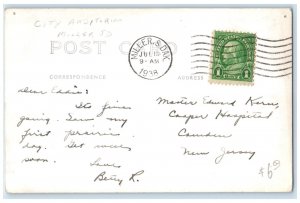 CITY AUDITORIUM
MILLER SD
POST CARD
MILLER, S.DAK.
JUL 15
8-AM
1938
CORRESPONDENCE
ADDRESS
1
Dear Eddie:
Its fine
going. Saw my
first prairie
dog. Get well
soon.
Love
Betty R.
Master Edward Karns,
Cooper Hospital
Camden
New Jersey
$6.50